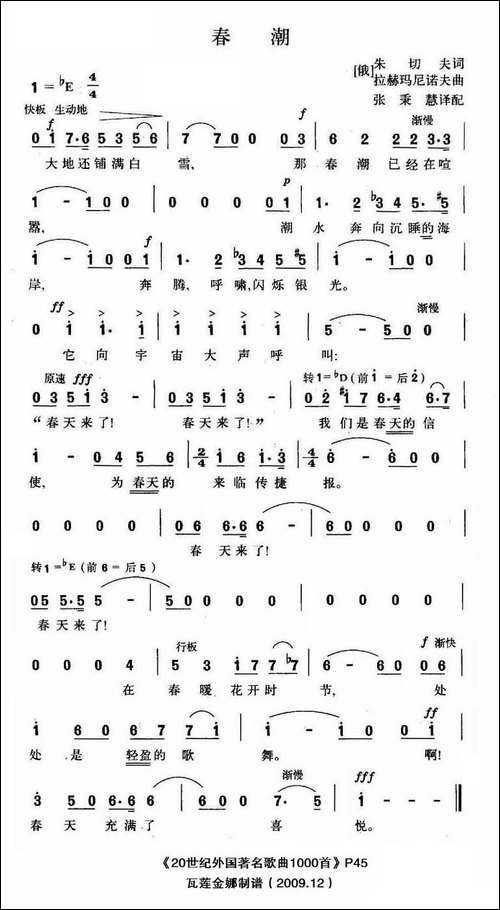 春 潮
[俄]朱 切 夫词
拉赫玛尼诺夫曲
张 秉 慧译配
1=♭E 4/4
快板 生动地
f f 渐慢
0 1 7·6 5 3 5 5 6 | 7 7 0 0 0 3 | 6 2 2 2 3·3 |
大地还铺满白 雪, 那春潮 已经在喧
p
1 - 1 0 0 | 0 0 0 0 1 | 1· 2 ♭3 4 5 5·#5 |
嚣, 潮 水 奔向沉睡的海
f
1 - 1 0 0 1 | 1· 2 ♭3 4 5 #5 | 1 - 1 0 0 |
岸, 奔 腾, 呼啸,闪烁银 光。
ff 渐慢
0 1 1· 1 | 1 1 1 1 | 5 - 5 0 0 |
它向宇 宙大声呼 叫:
原速 fff 转1=♭D(前1=后2)
0 3 5 1 3 - | 0 3 5 1 3 - | 0 2 #1 7 6·4 6·7 |
“春天来了! 春天来了!” 我们是春天的信
1 - 0 4 5 6 | 2/4 1 6 1·3 | 4/4 6 - 6 0 0 |
使, 为春天的 来临传捷 报。
0 0 0 0 | 0 6 6·6 6 - | 6 0 0 0 |
春天来了!
转1=♭E(前6=后5)
0 5 5·5 5 - | 5 0 0 0 | 0 0 0 0 |
春天来了!
行板 f 渐快
0 0 0 4 | 5 3 1 7 7 ♭7 | 6 - 6 0 0 6 |
在 春暖花开时 节, 处
ff
1 6 0 6 7 7 1 | 1 - 1 0 0 1 |
处 是 轻盈的歌 舞。 啊!
渐慢 fff
3 5 0 6 6·6 | 6 0 0 7· 5 | 1 - - - ‖
春 天 充满了 喜 悦。
《20世纪外国著名歌曲1000首》P45
瓦莲金娜制谱(2009.12)